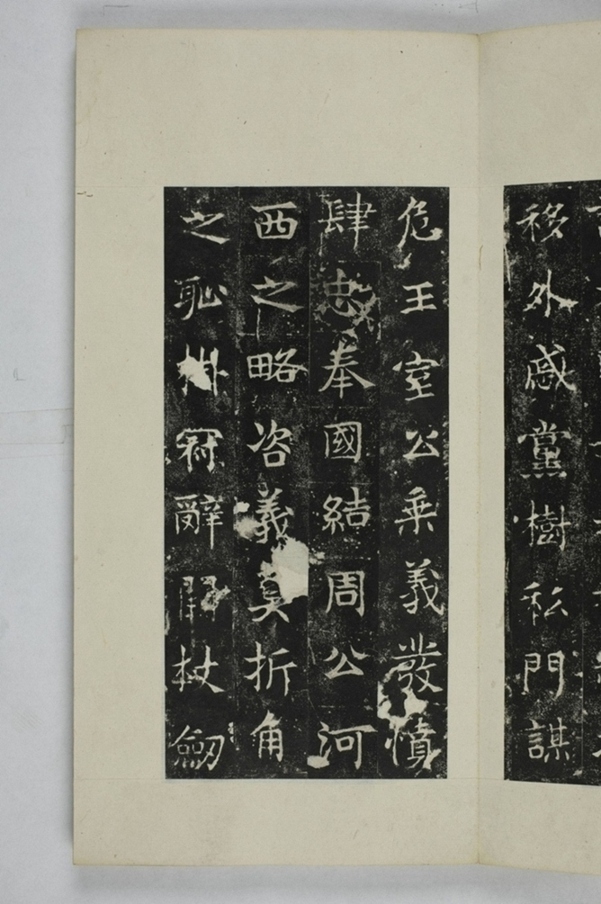 移外戚黨樹私門謀
危王室公乗義發憤
肆忠奉國結周公河
西之略咨義真折角
之恥掛冠辭闕杖劒